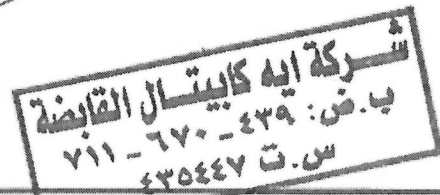 شركة ايه كابيتال القابضة
ب.ض: ٤٣٩ - ٦٧٠ - ٧١١
س.ت ٤٣٥٤٤٧